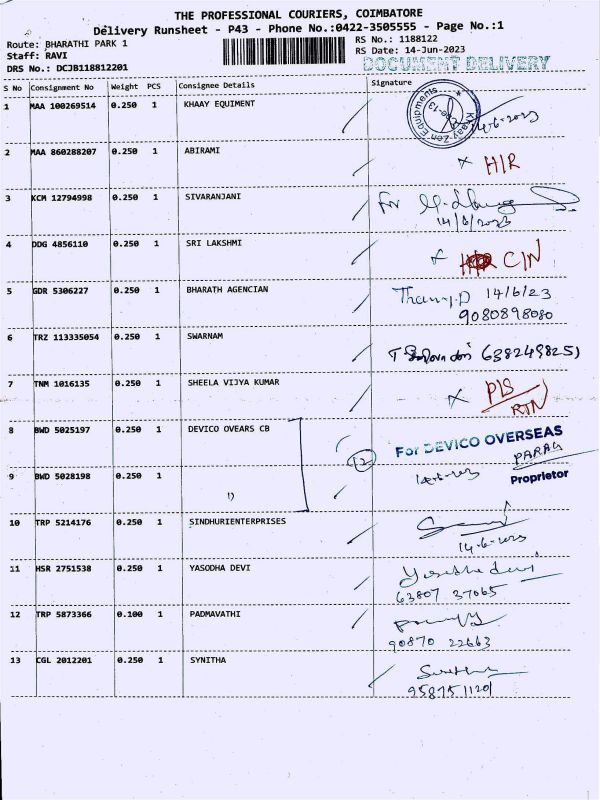 THE PROFESSIONAL COURIERS, COIMBATORE
Delivery Runsheet - P43 - Phone No.:0422-3505555 - Page No.:1
Route: BHARATHI PARK 1
RS No.: 1188122
Staff: RAVI
RS Date: 14-Jun-2023
DRS No.: DCJB118812201
DOCUMENT DELIVERY
S No Consignment No Weight PCS Consignee Details Signature
1 MAA 100269514 0.250 1 KHAAY EQUIMENT
Khaay-Zen Equipments
14-6-2023
2 MAA 860288207 0.250 1 ABIRAMI x H/R
3 KCM 12794998 0.250 1 SIVARANJANI For
14/6/2023
4 DDG 4856110 0.250 1 SRI LAKSHMI x C/N
5 GDR 5306227 0.250 1 BHARATH AGENCIAN 14/6/23
9080898080
6 TRZ 113335054 0.250 1 SWARNAM
7 TNM 1016135 0.250 1 SHEELA VIJYA KUMAR x PLS
RTN
8 BWD 5025197 0.250 1 DEVICO OVEARS CB
12
For DEVICO OVERSEAS
PARAG
9 BWD 5028198 0.250 1
14-6-2023
Proprietor
10 TRP 5214176 0.250 1 SINDHURIENTERPRISES
14-6-2023
11 HSR 2751538 0.250 1 YASODHA DEVI Yasodha devi
63807 37065
12 TRP 5873366 0.100 1 PADMAVATHI
90870 22663
13 CGL 2012201 0.250 1 SYNITHA
9587511201